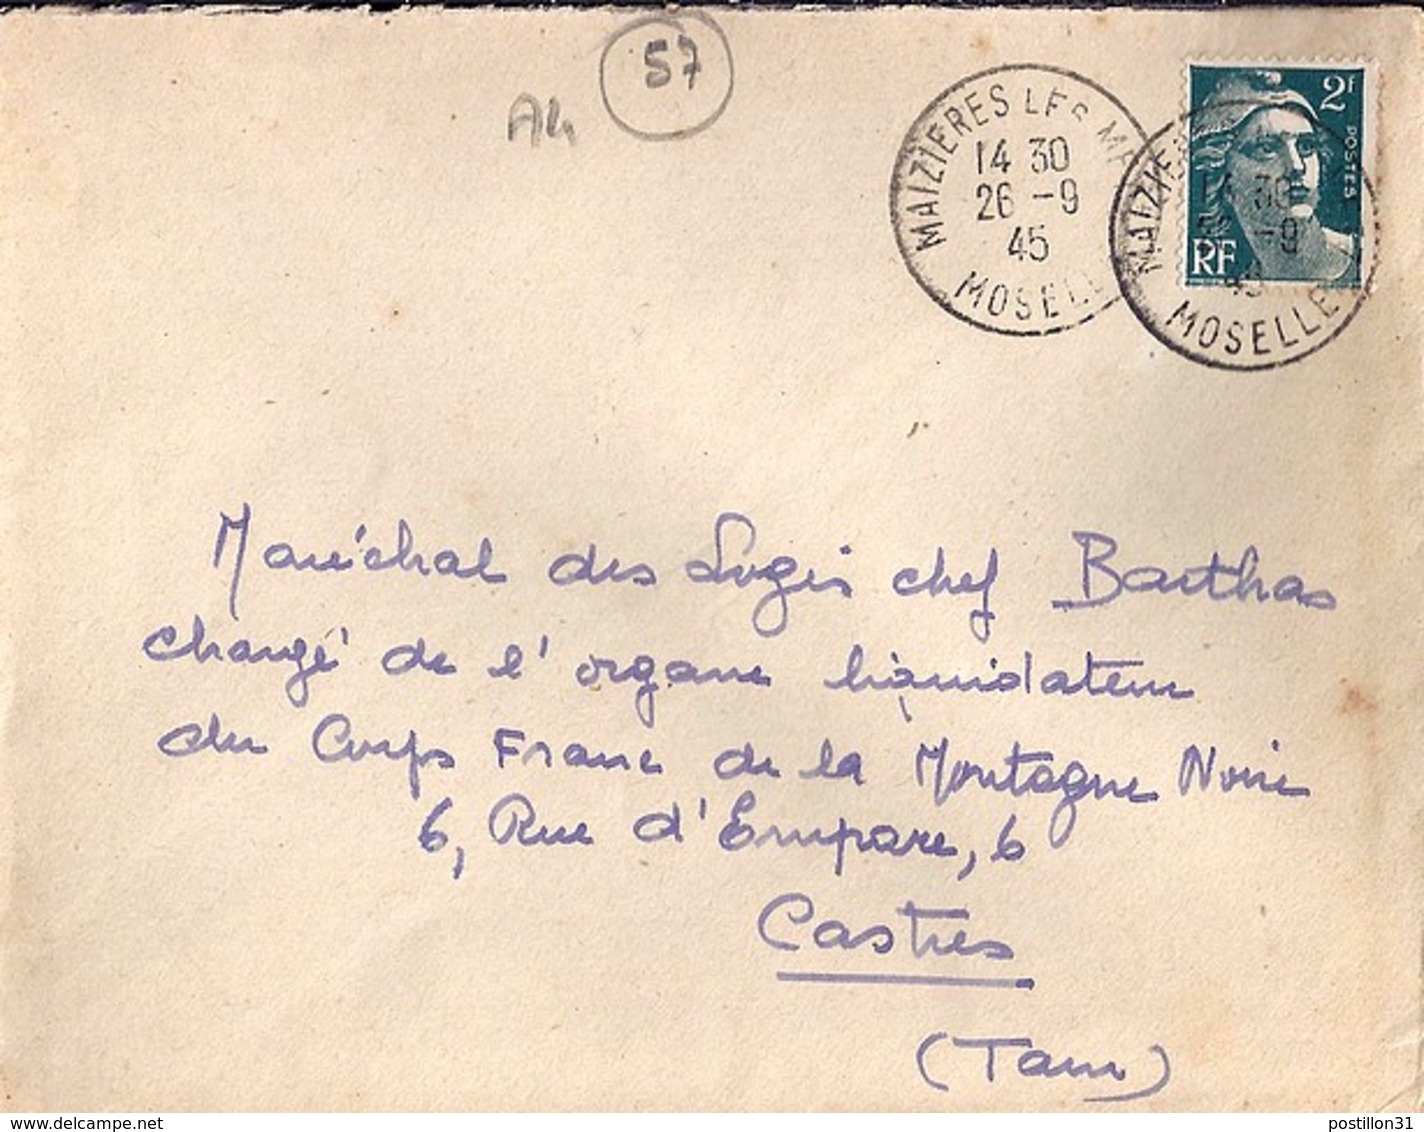 57
A4
MAIZIERES LES ME
14 30
26 -9
45
MOSELLE
2f
POSTES
RF
MAIZIE
14 30
-9
MOSELLE
Maréchal des Logis chef Barthas
chargé de l'organe liquidateur
du Corps Franc de la Montagne Noire
6, Rue d'Empare, 6
Castres
(Tarn)
https://www.delcampe.net
postillon31